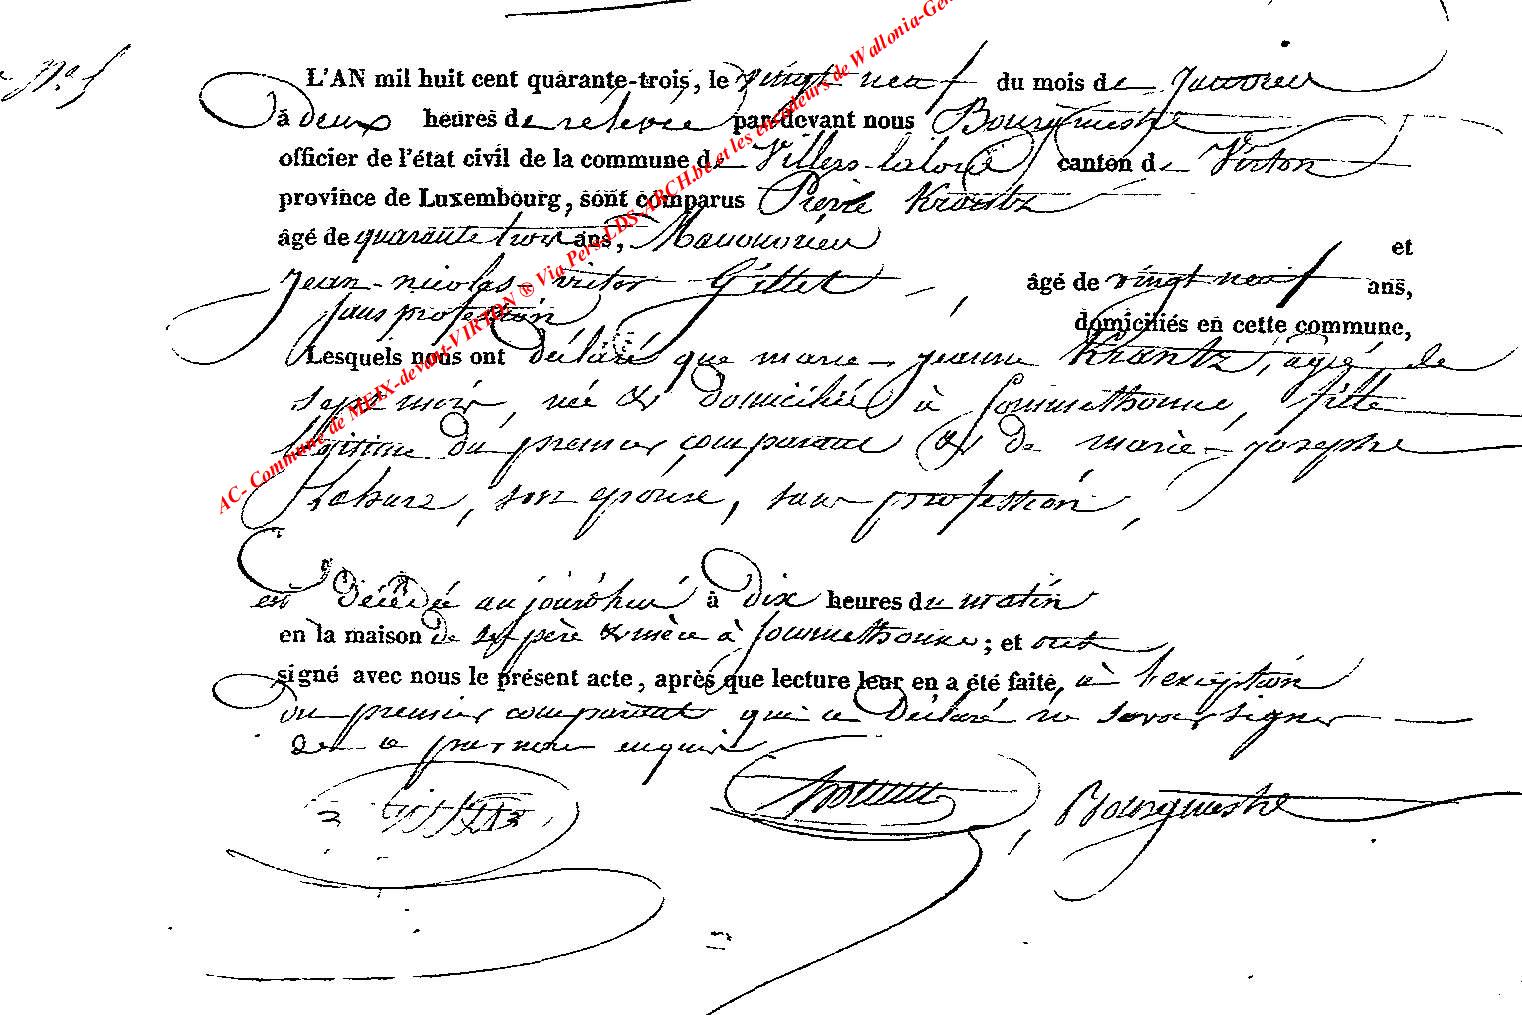 N.° 5
L'AN mil huit cent quarante-trois, le vingt neuf du mois de Janvier
à deux heures de rélévée par-devant nous Bourgmestre
officier de l'état civil de la commune de Villers-laloue canton de Virton
province de Luxembourg, sont comparus Pierre Krantz
âgé de quarante trois ans, Manouvrier et
Jean-nicolas-victor Gillet, âgé de vingt neuf ans,
sans profession domiciliés en cette commune,
Lesquels nous ont déclaré que marie-jeanne Krantz, agée de
sept mois, née & domiciliée à Sommethonne, fille
légitime du premier comparant & de marie-josephe
son épouse, sans profession,
est décédée aujourd'hui à dix heures du matin
en la maison de ses père & mère à Sommethonne; et ont
signé avec nous le présent acte, après que lecture leur en a été faite, à l'exception
du premier comparant qui a déclaré ne savoir signer
de ce par nous enquis
Bourgmestre
AC- Commune de MEIX-devant-VIRTON ® Via Pers-LDS-ARCH.be et les encodeurs de Wallonia-Gen